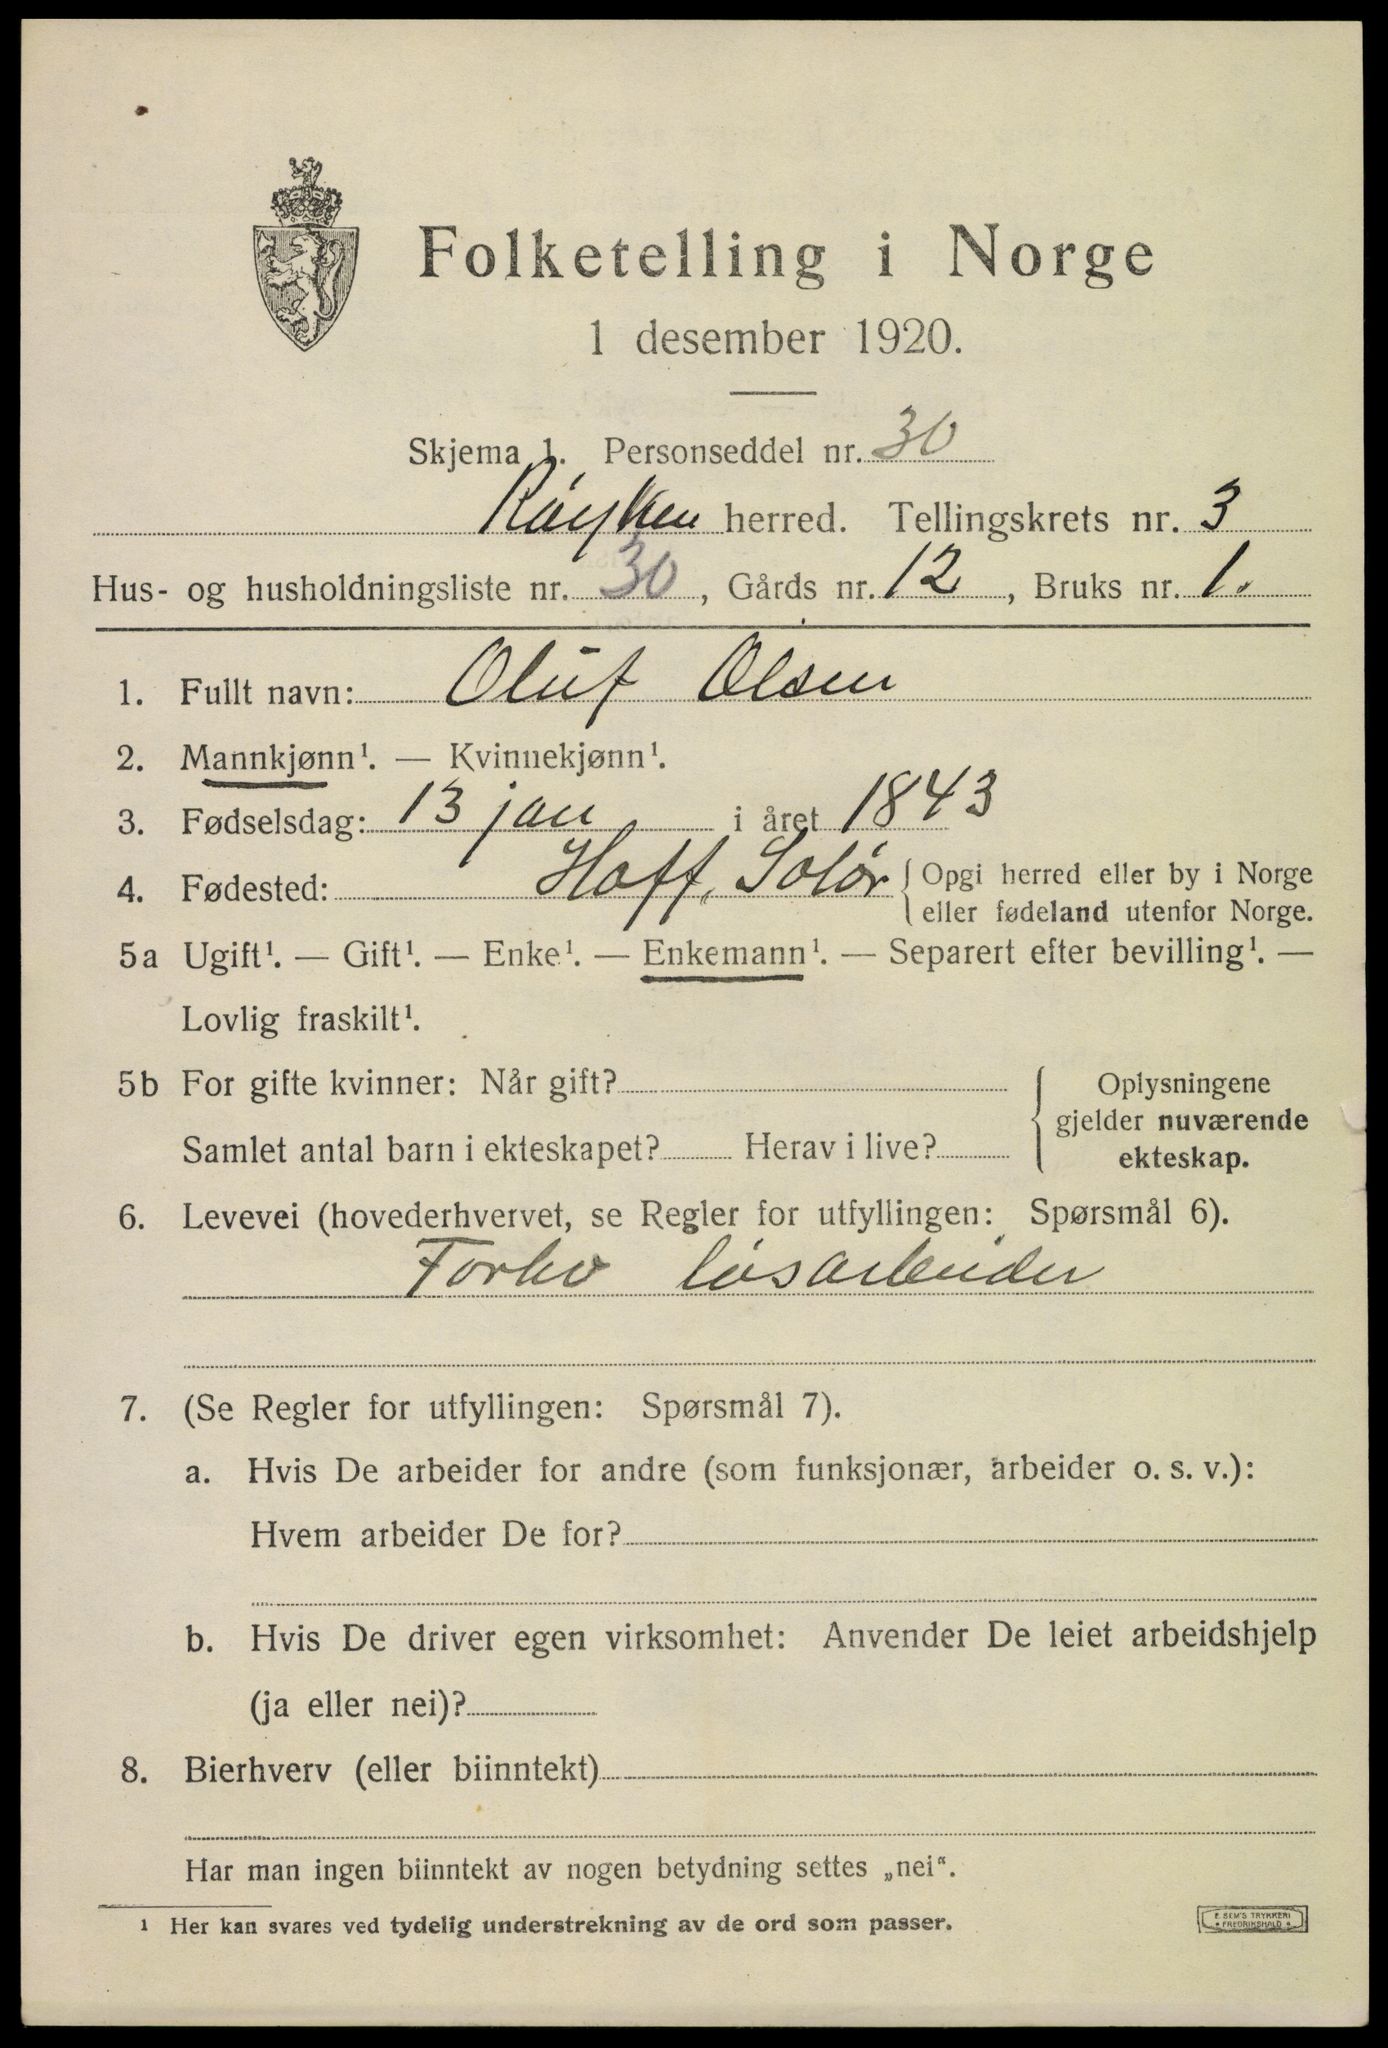 Folketelling i Norge
1 desember 1920.
Skjema 1. Personseddel nr. 30
Røyken herred. Tellingskrets nr. 3
Hus- og husholdningsliste nr. 30, Gårds nr. 12, Bruks nr. 1.
1. Fullt navn: Oluf Olsen
2. Mannkjønn¹. — Kvinnekjønn¹.
3. Fødselsdag: 13 jan i året 1843
4. Fødested: Hoff, Solør { Opgi herred eller by i Norge
eller fødeland utenfor Norge.
5a Ugift¹. — Gift¹. — Enke¹. — Enkemann¹. — Separert efter bevilling¹. —
Lovlig fraskilt¹.
5b For gifte kvinner: Når gift? { Oplysningene
gjelder nuværende
Samlet antal barn i ekteskapet? Herav i live?
ekteskap.
6. Levevei (hovederhvervet, se Regler for utfyllingen: Spørsmål 6).
løsarbeider
7. (Se Regler for utfyllingen: Spørsmål 7).
a. Hvis De arbeider for andre (som funksjonær, arbeider o. s. v.):
Hvem arbeider De for?
b. Hvis De driver egen virksomhet: Anvender De leiet arbeidshjelp
(ja eller nei)?
8. Bierhverv (eller biinntekt)
Har man ingen biinntekt av nogen betydning settes „nei“.
¹ Her kan svares ved tydelig understrekning av de ord som passer.
F. SEM'S TRYKKERI
• FREDRIKSHALD •